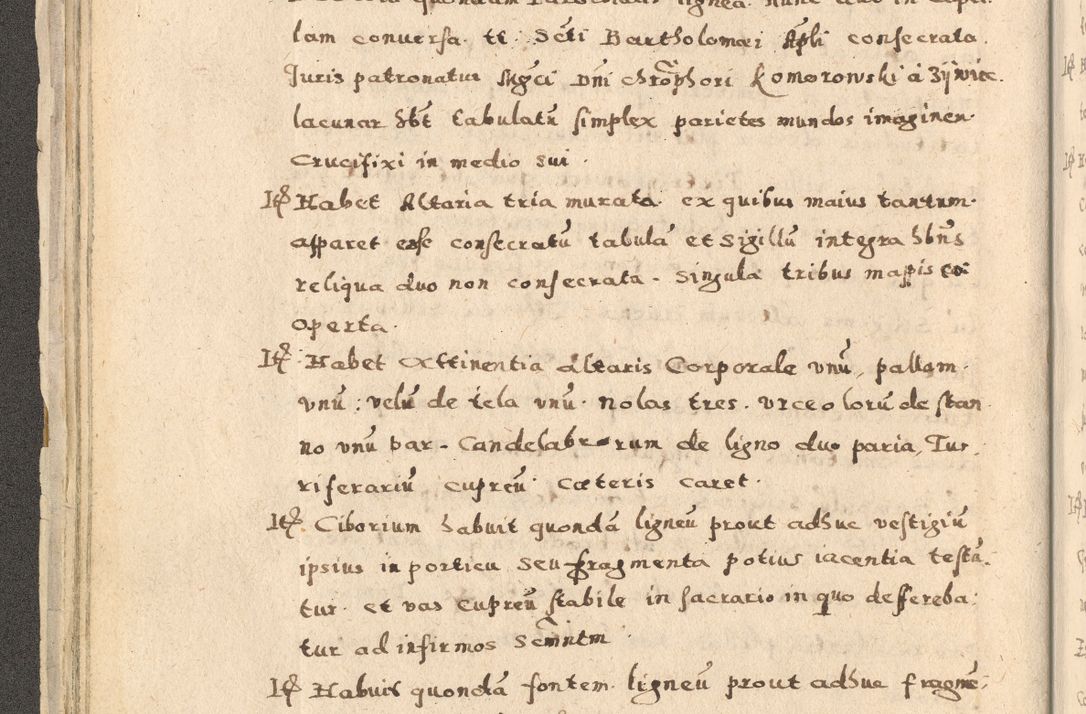 lam conversa. tt. Scti Bartholomæi Apli consecrata.
Juris patronatus Mgci Dni Chrophori Komorowski à Zijwiec.
lacunar hbt tabulatũ simplex parietes mundos imaginem
Crucifixi in medio sui.
Itẽ Habet Altaria tria murata. ex quibus maius tantum.
apparet esse consecratũ tabulã et Sigillũ integra hbns
reliqua duo non consecrata. Singula tribus mapis co
operta.
Itẽ Habet Attinentia Altaris Corporale vnũ, pallam.
vnũ: velũ de tela vnũ. nolas tres. vrceolorũ de stan
no vnũ par. Candelabrorum de ligno duo paria, Tur
riferariũ cupreũ cæteris caret.
Itẽ Ciborium habuit quondã ligneũ prout adhuc vestigiũ
ipsius in porticu seu fragmenta potius iacentia testũ
tur. et vas cupreũ stabile in sacrario in quo deffereba
tur ad infirmos Scmntm.
Itẽ Habuit quondã fontem ligneũ prout adhuc fragmẽ